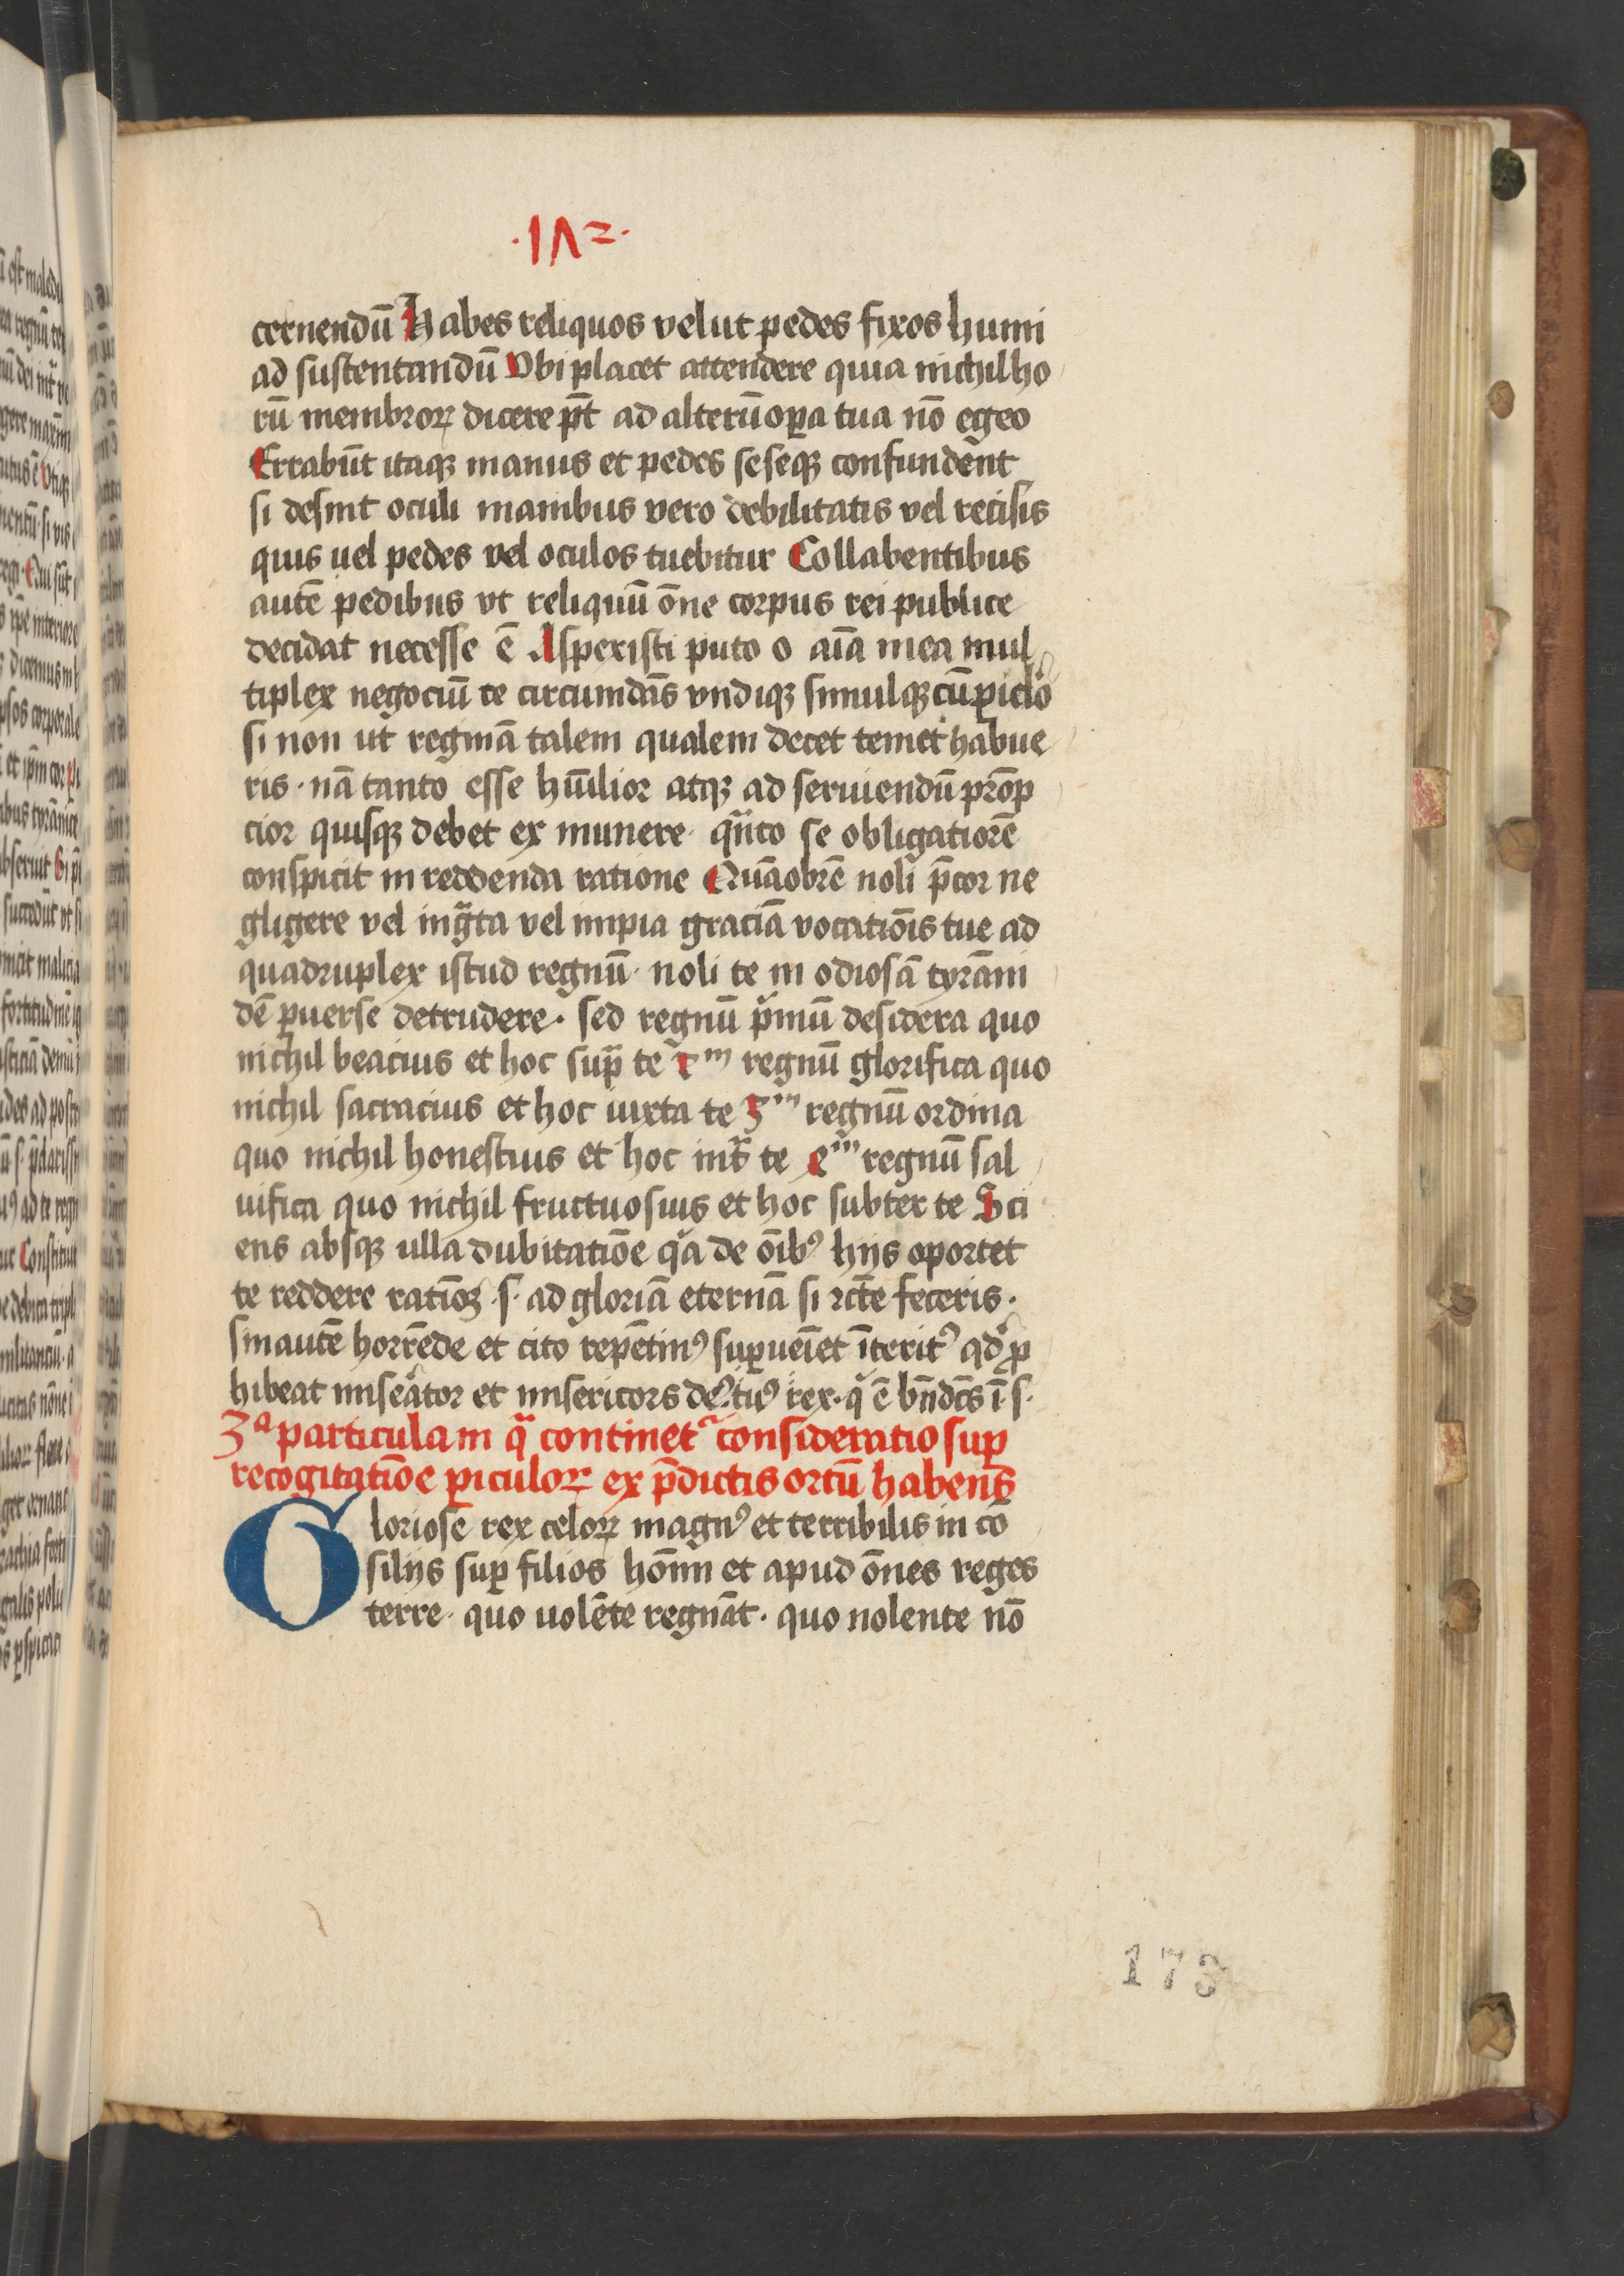 ·1Λ2·
cernendū Habes reliquos velut pedes fixos humi
ad sustentandū Vbi placet attendere quia nichil ho
rū membroꝝ dicere pt̄ ad alterū oꝑa tua nō egeo
Errabūt itaqꝫ manus et pedes seseqꝫ confundent
si desint oculi manibus vero debilitatis vel recisis
quis uel pedes vel oculos tuebitur Collabentibus
autē pedibus vt reliquū ōne corpus rei publice
decidat necesse ē Aspexisti puto o aīa mea mul
tiplex negociū te circumdās vndiqꝫ simulqꝫ cū ꝑiclo
si non ut reginā talem qualem decet temet habue
ris · nā tanto esse hūilior atqꝫ ad seruiendū promp
cior quisqꝫ debet ex munere · qn̄to se obligatiorē
conspicit in reddenda ratione Quāobrē noli p̄cor ne
gligere vel ing̃ta vel impia graciā vocatiōis tue ad
quadruplex istud regnū · noli te in odiosā tyrāni
dē ꝑuerse detrudere · sed regnū pⁱmū desidera quo
nichil beacius et hoc supᵃ te 2ᵐ regnū glorifica quo
nichil sacracius et hoc iuxta te 3ᵐ regnū ordina
quo nichil honestius et hoc int̄ te 4ᵐ regnū sal
uifica quo nichil fructuosius et hoc subter te Sci
ens absqꝫ ulla dubitatiōe qᵃ de oībꝰ hijs oportet
te reddere ratiōeꝫ · s · ad gloriā eternā si rc̄te feceris ·
sin autē horrēde et cito repētinꝰ suꝑueīet īteritꝰ qd̄ ꝓ
hibeat miserator et misericors deꝰ tuꝰ rex · qⁱ ē bn̄dcs ī · s ·
3ᵃ particulam qᵃ continetᷣ consideratio suꝑ
recogitatiōe ꝑiculoꝝ ex p̄dictis ortū habens
Gloriose rex celoꝝ magnꝰ et terribilis in cō
silijs suꝑ filios hoīm et apud ōnes reges
terre · quo uolēte regnāt · quo nolente nō
173